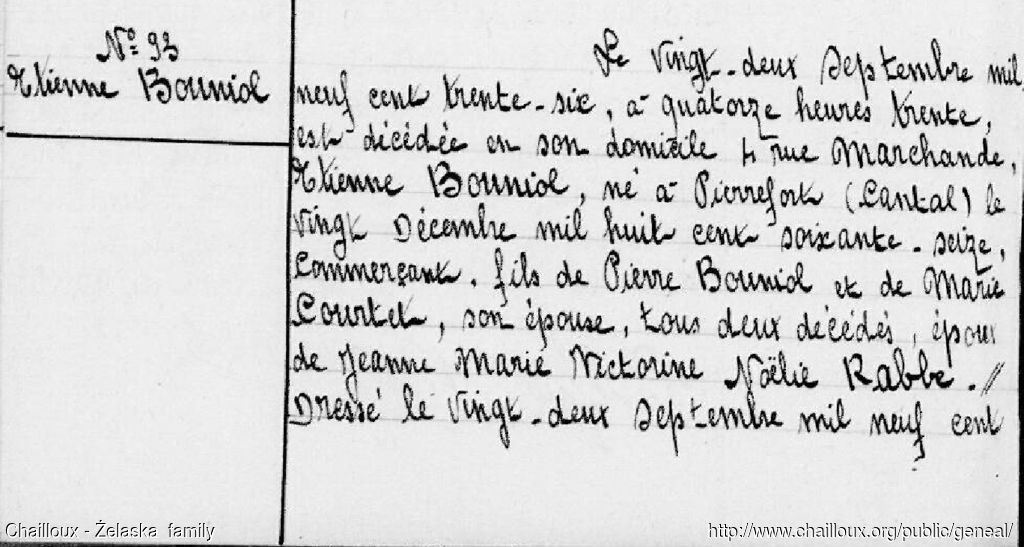 N° 93
Etienne Bouniol
Le vingt-deux Septembre mil
neuf cent trente-six, à quatorze heures trente,
est décédée en son domicile 4 rue Marchande,
Etienne Bouniol, né à Pierrefort (Cantal) le
vingt Décembre mil huit cent soixante-seize,
Commerçant, fils de Pierre Bouniol et de Marie
Courtet, son épouse, tous deux décédés, époux
de Jeanne Marie Victorine Noëlie Rabbe.//
Dressé le vingt-deux Septembre mil neuf cent
Chailloux - Želaska family
http://www.chailloux.org/public/geneal/